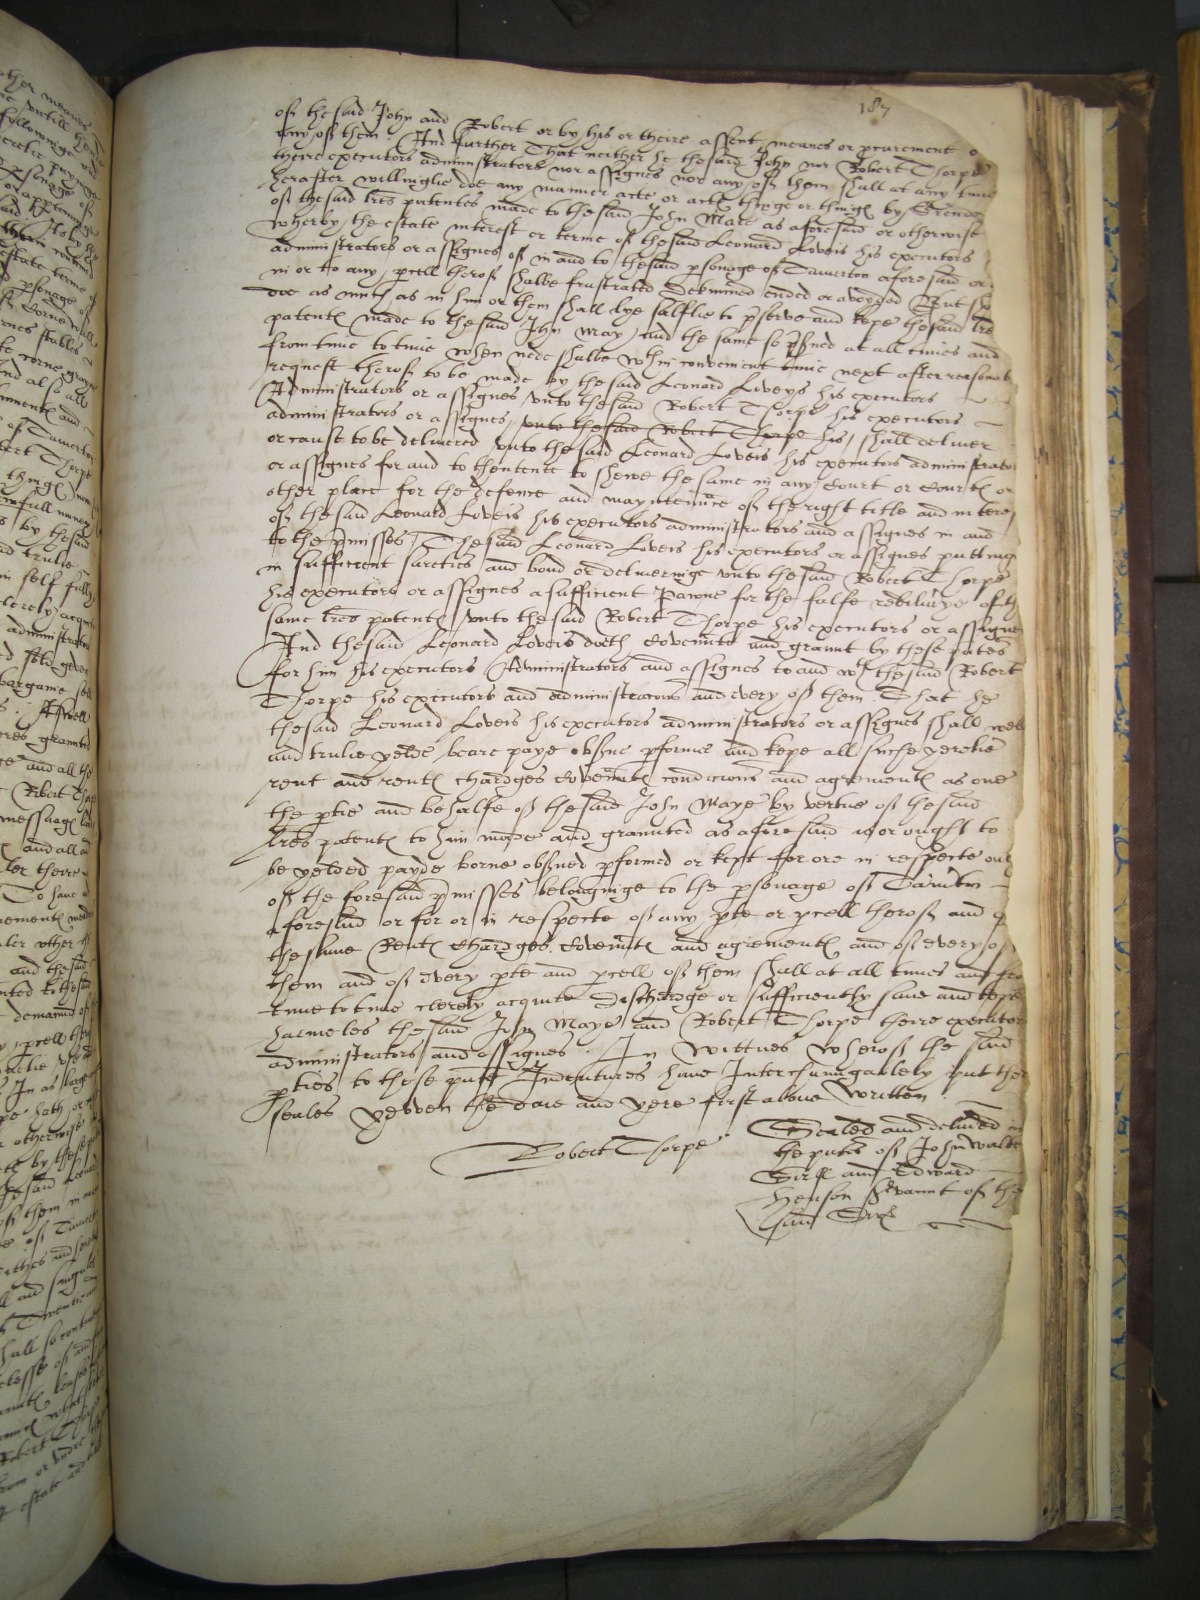 187
of the said John and Robert or by his or theire assent meanes or pcurement o
any of them And further That neither he the said John nor Robert Thorpe
theire executors administrators nor assignes nor any of them shall at any time
herafter willinglie doe any manner acte or actℓ thinge or thingℓ by
of the said lres patentes made to the said John Maie as aforesaid or otherwise
wherby the estate interest or terme of the said Leonard Loveis his executors
administrators or assignes of in and to the said psonage of Tawerton aforesaid or
in or to any pcell therof shalbe frustrated determined ended or avoyded But sh
doe as much as in him or them shall lye salflie to pserve and kepe the said lre
patentℓ made to the said Jhn May and the same so pserved at all times and
from time to time when nede shalbe whin convenient time next after reasonab
request therof to be made by the said Leonard Loveys his executors
Administrators or assignes vnto the said Robert Thorpe his executors
administrators or assignes vnto the said Robert Thorpe his shall deliver
or cause to be delivered vnto the said Leonard Loveis his executors administrato
or assignes for and to thentente to shewe the same in any Court or Courtℓ or
other place for the defence and mayntenance of the right title and interes
of the said Leonard Loveis his executors administrators and assignes in and
to the pmisses The said Leonard Loveis his executors or assignes putting
in sufficient suerties and bond or deliveringe vnto the said Robert Thorpe
his executors or assignes a sufficient pawne for the salfe redeliverye of th
same lres patentℓ vnto the said Robert Thorpe his executors or assigne
And the said Leonard Loveis doth covennte and graunt by these pntes
for him his executors Administrators and assignes to and wth the said Robert
Thorpe his executors and administrators and every of them That he
the said Leonard Loveis his executors administrators or assignes shall well
and trulie yelde beare paye obserue pforme and kepe all suche yerelie
rent and rentℓ chardges covenntℓ condicions and agrementℓ as one
the ptie and behalfe of the said John Maye by vertue of the said
lres patentℓ to him made and graunted as aforesaid is or ought to
be yelded payde borne obserued pformed or kept for or in respecte
of the foresaid pmisses belonginge to the psonage of Tawton
aforesaid or for or in respecte of any pte or pcell therof and
the same Rentℓ Chardges Covenntℓ and agrementℓ and of every of
them and of every pte and pcell of them shall at all times and fro
time to time clerely acquite dischardge or sufficiently save and kepe
harmeles the said John Maye and Robert Thorpe theire executor
administrators and assignes . In wittnes wherof the said
pties to these pnte Indentures have Interchaungeably put the
seales yeven the daie and yere first above written
Robert Thorpe
Sealed and delivred in
the pntes of John
and Edward
Henson servannt of the
said